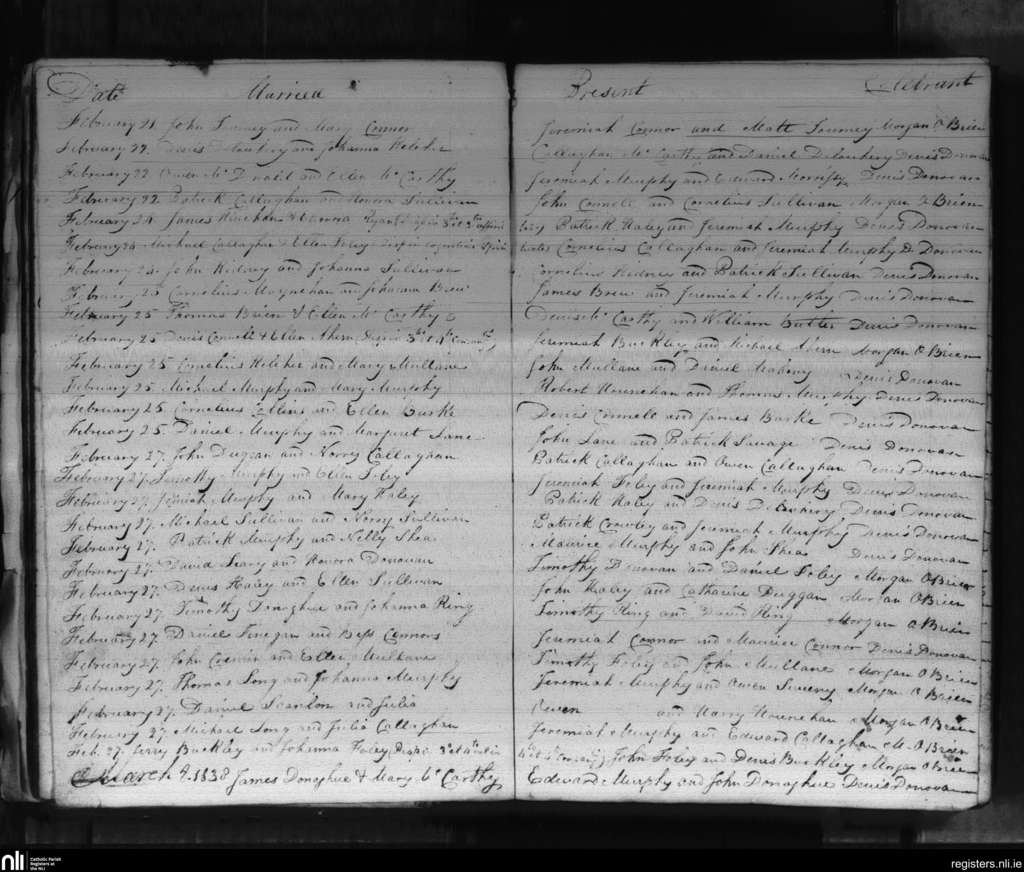 Date Married Present Celebrant
February 21. John Tourney and Mary Connor Jeremiah Connor and Matt Tourney Morgan O Brien
February 22. Denis and Johanna Kelcher Callaghan Mc Carthy and Daniel Delouhery Denis Donovan
February 22 Owen Mc Donald and Ellen Mc Carthy Jeremiah Murphy and Edward Denis Donovan
February 22. Patrick Callaghan and Honora Sullivan John Connell and Cornelius Sullivan Morgan O Brien
February 24. James and Honora Patrick Haley and Jeremiah Murphy Denis Donovan
February 24. Michael Callaghan & Ellen Foley Cornelius Callaghan and Jeremiah Murphy D. Donovan
February 25. John and Johanna Sullivan Cornelius and Patrick Sullivan Denis Donovan
February 25 Cornelius Moynehan and Johanna Brew James Brew and Jeremiah Murphy Denis Donovan
February 25 Thomas Brien & Ellen Mc Carthy Denis Mc Carthy and William Butler Denis Donovan
February 25 Denis Connell & Ellen Ahern 3° et 4° Jeremiah Buckley and Michael Ahern Morgan O Brien
February 25 Cornelius Kelcher and Mary Mullane John Mullane and Daniel Mahony Denis Donovan
February 25. Michael Murphy and Mary Murphy Robert Hounehan and Thomas Murphy Denis Donovan
February 25. Cornelius Collins and Ellen Burke Denis Connell and James Burke Denis Donovan
February 25. Daniel Murphy and Margaret Lane John Lane and Patrick Savage Denis Donovan
February 27. John Duggan and Norry Callaghan Patrick Callaghan and Owen Callaghan Denis Donovan
February 27. Timothy Murphy and Ellen Foley Jeremiah Foley and Jeremiah Murphy Denis Donovan
February 27. Jeremiah Murphy and Mary Haley Patrick Haley and Denis Delouhery Denis Donovan
February 27. Michael Sullivan and Norry Sullivan Patrick Crowley and Jeremiah Murphy Denis Donovan
February 27. Patrick Murphy and Nelly Shea Maurice Murphy and John Shea Denis Donovan
February 27. David Leary and Honora Donovan Timothy Donovan and Daniel Foley Morgan O Brien
February 27. Denis Haley and Ellen Sullivan John Haley and Catharine Duggan Morgan O Brien
February 27 Timothy Donoghue and Johanna Ring Timothy Ring and David Ring Morgan O Brien
February 27 Daniel Finegan and Bess Connors Jeremiah Connor and Maurice Connor Denis Donovan
February 27. John and Ellen Mullane Timothy Foley and John Mullane Morgan O Brien
February 27. Thomas Long and Johanna Murphy Jeremiah Murphy and Owen Morgan O Brien
February 27. Daniel Scanlon and Julia Owen and Harry Hounehan Morgan O Brien
February 27 Michael Long and Julia Callaghan Jeremiah Murphy and Edward Callaghan M. O Brien
Feb. 27. Jerry Buckley and Johanna Foley John Foley and Denis Buckley Morgan O Brien
March 4. 1838 James Donoghue & Mary Mc Carthy Edward Murphy and John Donoghue Denis Donovan
nli Catholic Parish Registers at the NLI
registers.nli.ie